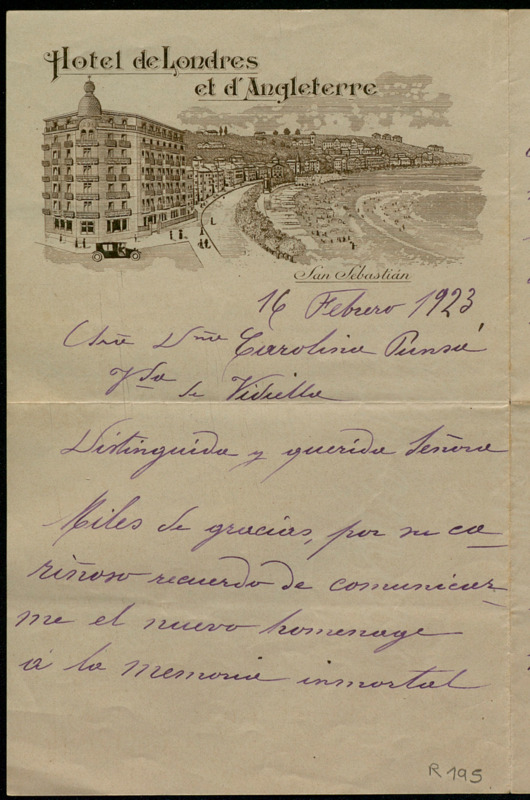 Hotel de Londres
et d'Angleterre
San Sebastián
16 Febrero 1923
Sra Dña Carolina Punsá
Vda de Vidiella
Distinguida y querida Señora
Miles de gracias, por su ca-
riñoso recuerdo de comunicar-
me el nuevo homenage
á la memoria inmortal
R 195